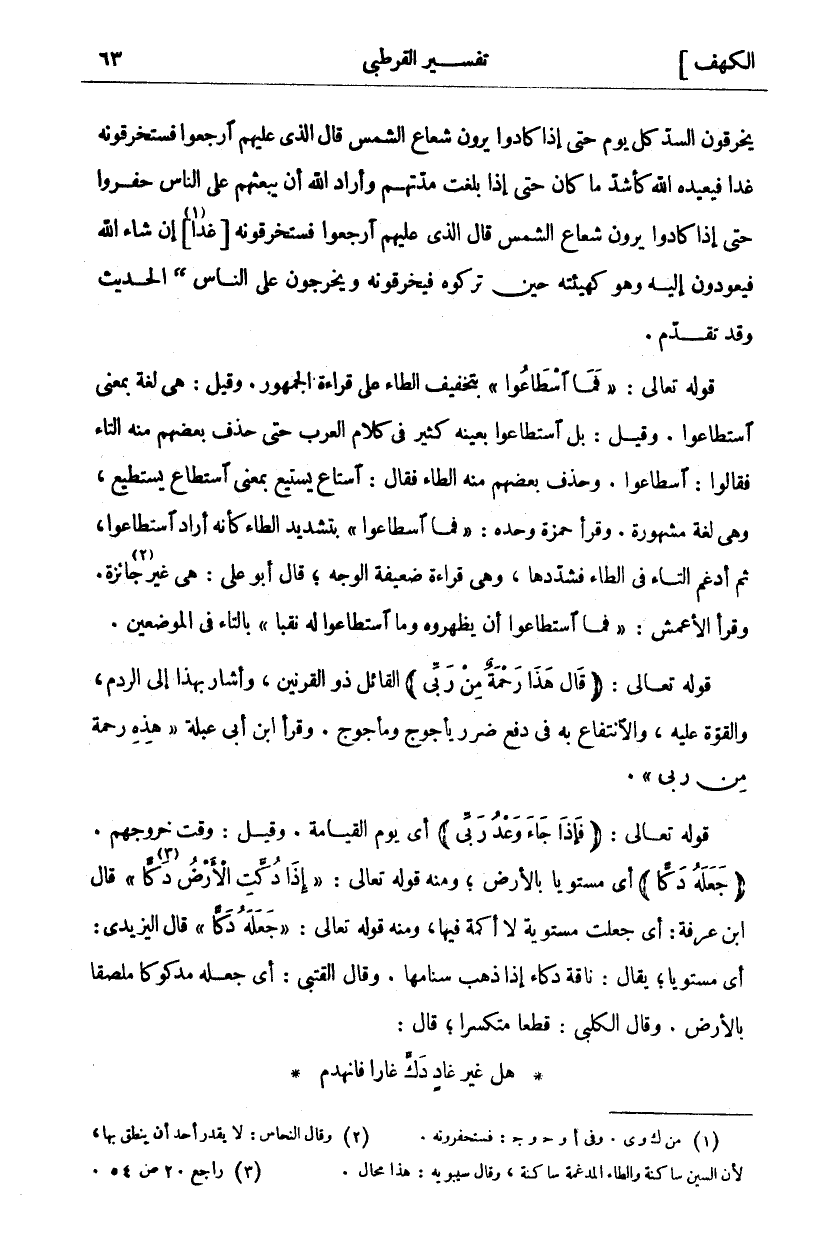 الكهف ] تفســـير القرطبي ٦٣
يخرقون السدّ كل يوم حتى إذا كادوا يرون شعاع الشمس قال الذى عليهم ٱرجعوا فستخرقونه
غدا فيعيده الله كأشدّ ما كان حتى إذا بلغت مدّتهـم وأراد الله أن يبعثهم على الناس حفـروا
حتى إذا كادوا يرون شعاع الشمس قال الذى عليهم ٱرجعوا فستخرقونه [غدا](١) إن شاء الله
فيعودون إليـه وهو كهيئته حيـن تركوه فيخرقونه ويخرجون على النـاس “ الحـديث
وقد تقـدّم .
قوله تعالى : « فَمَا ٱسْطَاعُوا » بتخفيف الطاء على قراءة الجمهور . وقيل : هى لغة بمعنى
ٱستطاعوا . وقيـل : بل ٱستطاعوا بعينه كثير فى كلام العرب حتى حذف بعضهم منه التاء
فقالوا : ٱسطاعوا . وحذف بعضهم منه الطاء فقال : ٱستاع يستيع بمعنى ٱستطاع يستطيع ،
وهى لغة مشهورة . وقرأ حمزة وحده : « فمـا ٱسطاعوا » بتشديد الطاء كأنه أراد ٱستطاعوا،
ثم أدغم التـاء فى الطاء فشدّدها ، وهى قراءة ضعيفة الوجه ؛ قال أبو على : هى غير جائزة(٢).
وقرأ الأعمش : « فمـا ٱستطاعوا أن يظهروه وما ٱستطاعوا له نقبا » بالتاء فى الموضعين .
قوله تعـالى : ﴿ قَالَ هَذَا رَحْمَةٌ مِنْ رَبِّى ﴾ القائل ذو القرنين ، وأشار بهذا إلى الردم،
والقوّة عليه ، والٱنتفاع به فى دفع ضرر يأجوج ومأجوج . وقرأ ابن أبى عبلة « هذِهِ رحمة
مِن ربى » .
قوله تعـالى : ﴿ فَإِذَا جَاءَ وَعْدُ رَبِّى ﴾ أى يوم القيـامة . وقيـل : وقت خروجهم .
﴿ جَعَلَهُ دَكًّا ﴾ أى مستويا بالأرض ؛ ومنه قوله تعالى : « إِذَا دُكَّتِ الْأَرْضُ دَكًّا(٣) » قال
ابن عرفة : أى جعلت مستوية لا أكمة فيها، ومنه قوله تعالى : «جَعَلَهُ دَكًّا » قال اليزيدى :
أى مستويا؛ يقال : ناقة دكاء إذا ذهب سنامها . وقال القتبى : أى جعـله مدكوكا ملصقا
بالأرض . وقال الكلبى : قطعا متكسرا ؛ قال :
* هل غير غادٍ دَكَّ غارا فانهدم *
(١) من ك وى . وفى أ و حـ و جـ : فستحفرونه . (٢) وقال النحاس : لا يقدر أحد أن ينطق بها،
لأن السين ساكنة والطاء المدغمة ساكنة ، وقال سيبويه : هذا محال . (٣) راجع ٢٠ ص ٥٤ .